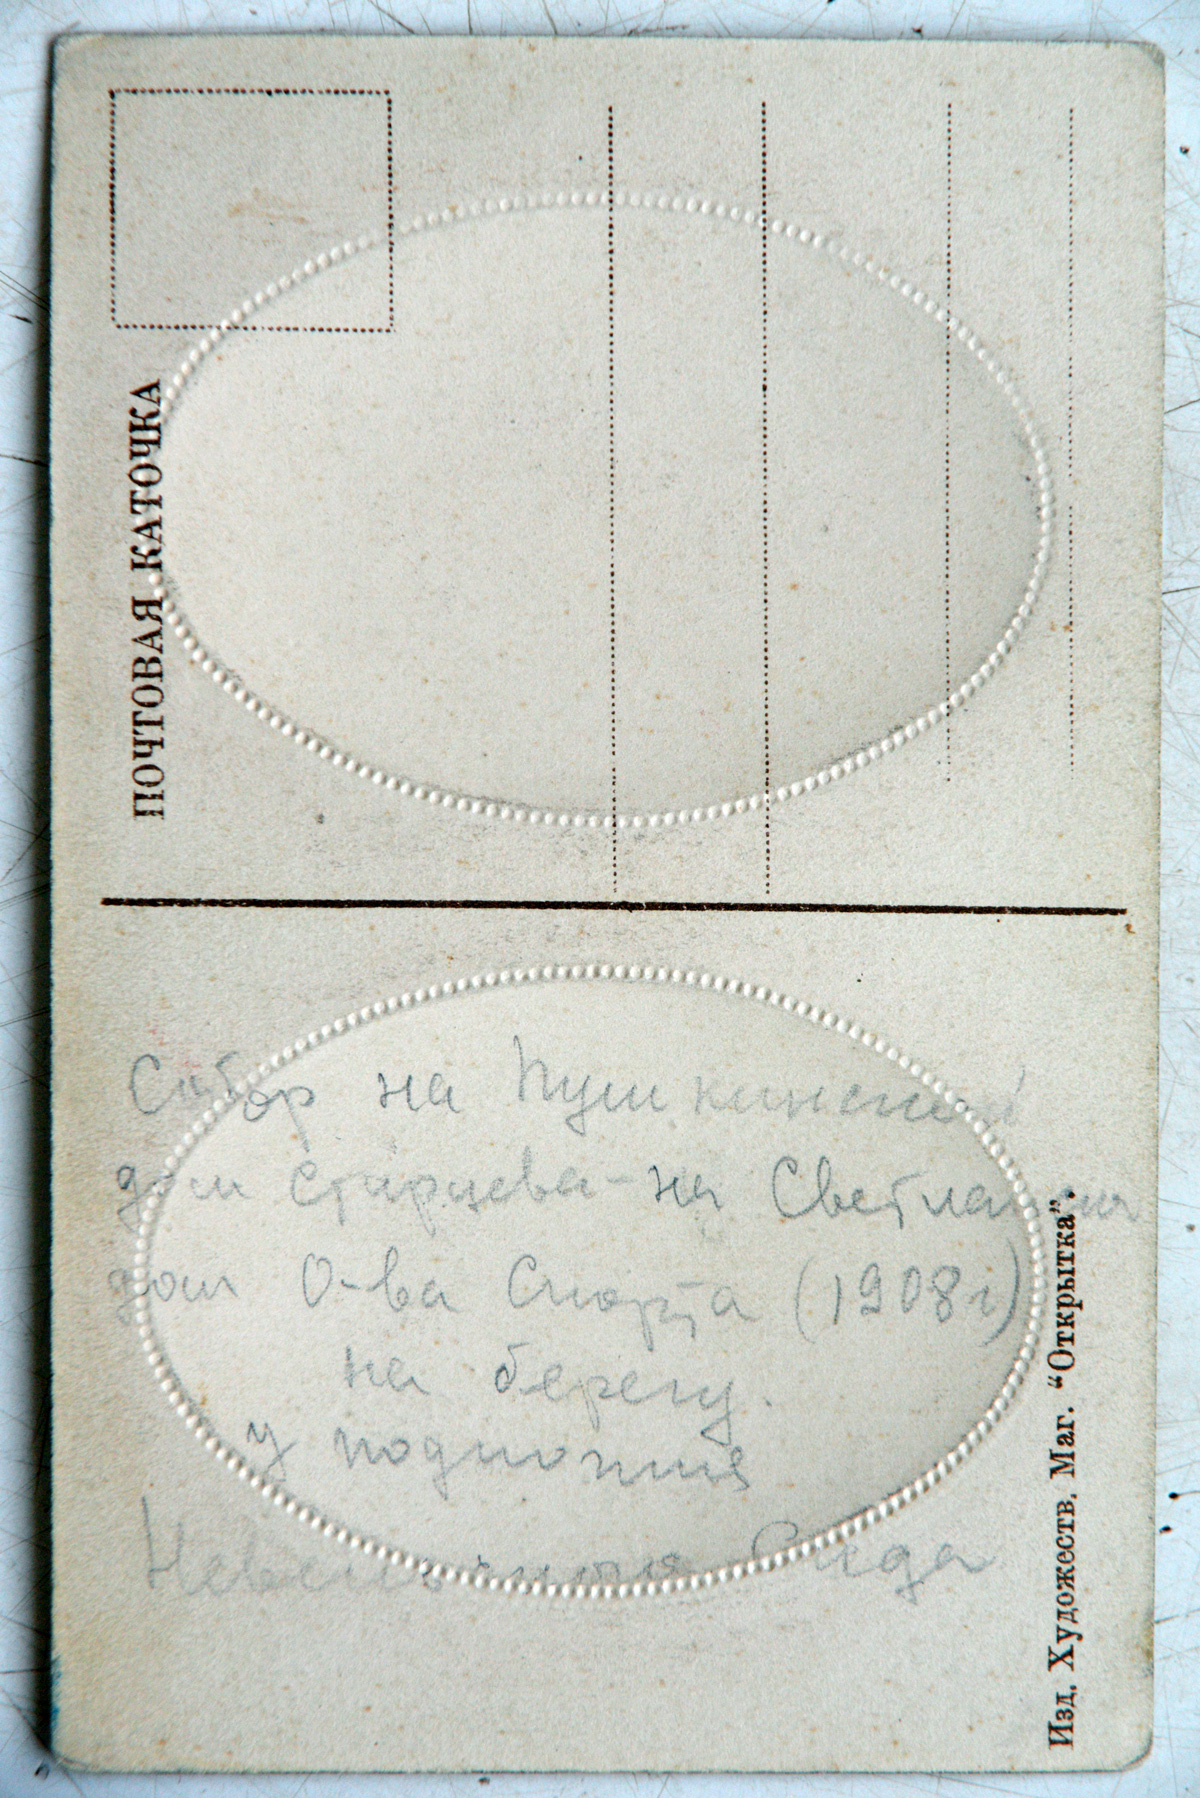 ПОЧТОВАЯ КАТОЧКА
Собор на Пушкинской
дом Старцева - на Светланск
дом О-ва Спорта (1908г)
на берегу.
у подножия
Изд. Художеств. Маг. “Открытка”.